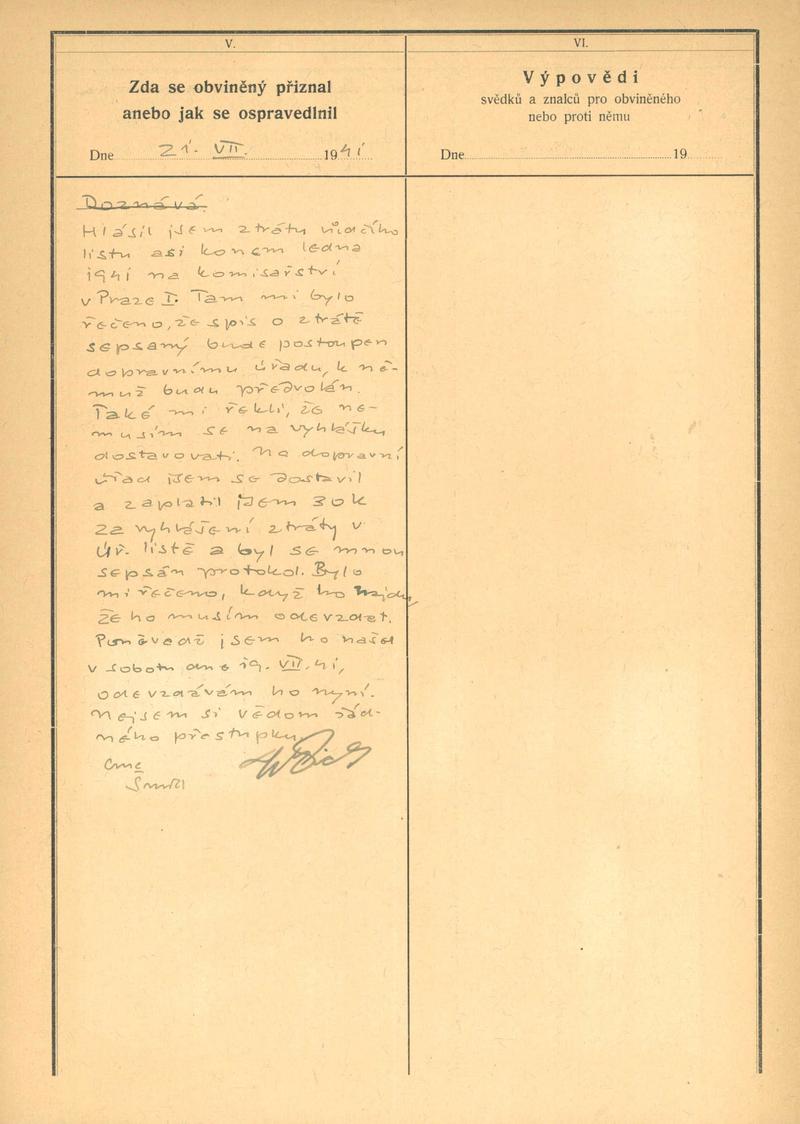 V.
Zda se obviněný přiznal
anebo jak se ospravedlnil
Dne 21. VII. 1941
Doznává.
Hlásil jsem ztrátu vůdčího
listu asi koncem ledna
1941 na komisařství
v Praze I. Tam mi bylo
řečeno, že spis o ztrátě
sepsaný bude postoupen
dopravnímu úřadu, k ně-
muž budu předvolán.
Také mi řekli, že ne-
musím se na vyhlášku
dostavovati. Na dopravní
úřad jsem se dostavil
a zaplatil jsem 30 K
za vyhlášení ztráty v
Úř. listě a byl se mnou
sepsán protokol. Bylo
mi řečeno, když ho najdu,
že ho musím odevzdat.
Poněvadž jsem ho našel
v sobotu dne 19. VII. 41,
odevzdávám ho nyní.
Nejsem si vědom žád-
ného přestupku.
VI.
Výpovědi
svědků a znalců pro obviněného
nebo proti němu
Dne 19